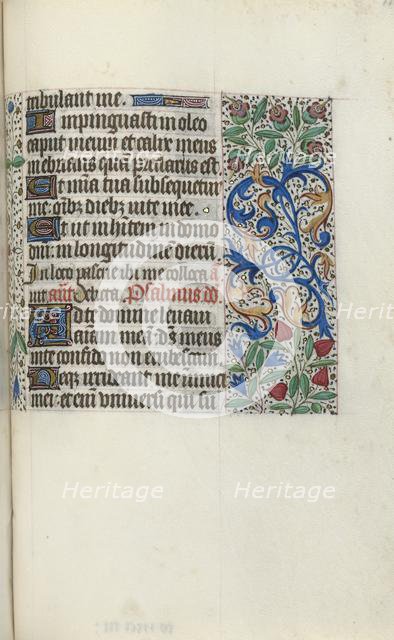 tribulant me.
Inpinguasti in oleo
caput meum et calix meus
inebrians quam preclarus est
Et mia tua subsequetur
me oibz diebz vite mee.
Et ut inhitem in domo
dni: in longitud me dierū
In loco pascue ibi me collocā a
āut Psalmus dd.
Ad te domine levavi
aiam meā: dz meus
in te confido non erubescam
Neqz irrideant me inimici
mei: etenī vniversi qui su
Heritage
Heritage
Heritage
Heritage
Heritage
Heritage